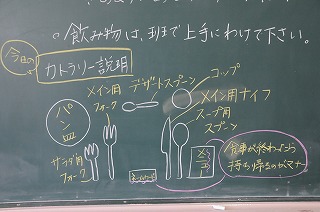 。飲み物は、班で上手にわけて下さい。
今日の
カトラリー説明
コップ
デザートスプーン
メイン用
フォーク
メイン用ナイフ
スープ用
スプーン
パン皿
サラダ用
フォーク
食事が終わったら
持ち帰るのがマナー